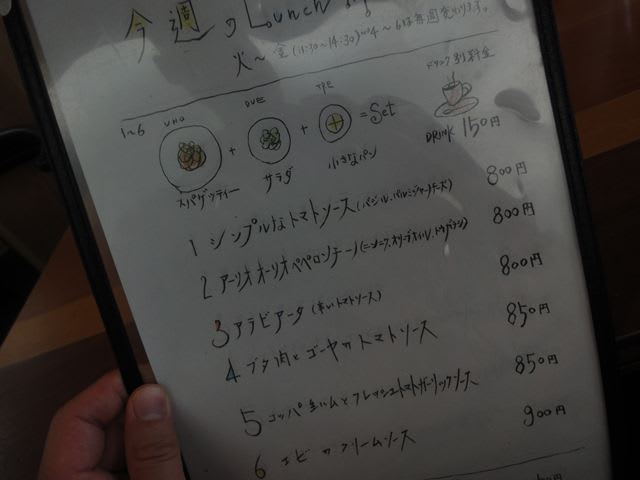 今週のLunch
火〜金 (11:30〜14:30) 4〜6は毎週変わります。
ドリンク別料金
1〜6 UNO DUE TRE
+ + = Set
スパゲッティー サラダ 小さなパン
DRINK 150円
1 シンプルなトマトソース (バジル、パルミジャーノチーズ) 800円
2 アーリオオーリオペペロンチーノ (ニンニク、オリーブオイル、トウガラシ) 800円
3 アラビアータ (辛いトマトソース) 800円
4 ブタ肉とゴーヤのトマトソース 850円
5 コッパ生ハムとフレッシュトマトガーリックソース 850円
6 エビのクリームソース 900円